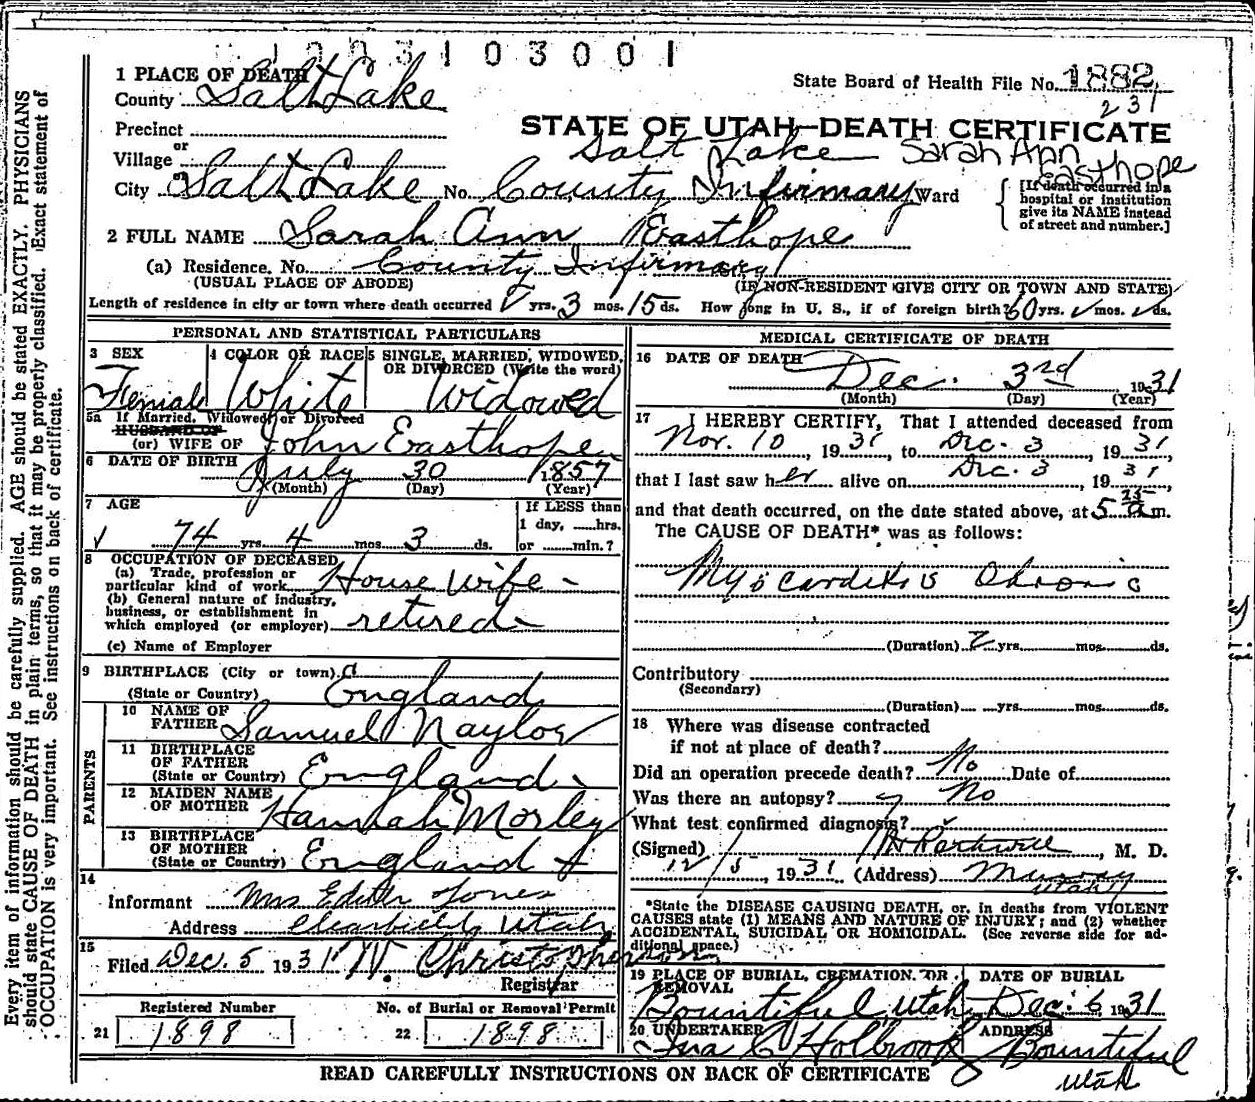 1003103001
1 PLACE OF DEATH
County Salt Lake
State Board of Health File No. 1882
231
Precinct
STATE OF UTAH—DEATH CERTIFICATE
or
Village
Salt Lake Sarah Ann Easthope
City or Salt Lake No. County Infirmary Ward
[If death occurred in a hospital or institution give its NAME instead of street and number.]
2 FULL NAME Sarah Ann Easthope
(a) Residence. No. County Infirmary
(USUAL PLACE OF ABODE) (IF NON-RESIDENT GIVE CITY OR TOWN AND STATE)
Length of residence in city or town where death occurred yrs. 3 mos. 15 ds. How long in U. S., if of foreign birth? 60 yrs. mos. ds.
PERSONAL AND STATISTICAL PARTICULARS
3 SEX
Femial
4 COLOR OR RACE
White
5 SINGLE, MARRIED, WIDOWED,
OR DIVORCED (Write the word)
Widowed
5a If Married, Widowed, or Divorced
HUSBAND OF
(or) WIFE OF John Easthope
6 DATE OF BIRTH July 30 1857
(Month) (Day) (Year)
7 AGE
74 yrs. 4 mos. 3 ds.
If LESS than
1 day, hrs.
or min.?
8 OCCUPATION OF DECEASED
(a) Trade, profession or
particular kind of work House Wife -
(b) General nature of industry,
business, or establishment in
which employed (or employer) retired -
(c) Name of Employer
9 BIRTHPLACE (City or town)
(State or Country) England
PARENTS
10 NAME OF
FATHER Samuel Naylor
11 BIRTHPLACE
OF FATHER
(State or Country) England
12 MAIDEN NAME
OF MOTHER Hannah Morley
13 BIRTHPLACE
OF MOTHER
(State or Country) England
14
Informant Mrs Edith Jones
Address Clearfield, Utah
15
Filed Dec. 5 1931 W. Christopherson
Registrar
Registered Number
21 1898
No. of Burial or Removal Permit
22 1898
MEDICAL CERTIFICATE OF DEATH
16 DATE OF DEATH Dec. 3rd 1931
(Month) (Day) (Year)
17 I HEREBY CERTIFY, That I attended deceased from
Nov. 10, 1931, to Dec. 3, 1931,
that I last saw her alive on Dec. 3, 1931,
and that death occurred, on the date stated above, at 5 25 a m.
The CAUSE OF DEATH* was as follows:
Myocarditis Chronic
(Duration) 2 yrs. mos. ds.
Contributory
(Secondary)
(Duration) yrs. mos. ds.
18 Where was disease contracted
if not at place of death?
Did an operation precede death? No Date of
Was there an autopsy? No
What test confirmed diagnosis?
(Signed) , M. D.
12/5, 1931 (Address) Murray
Utah
*State the DISEASE CAUSING DEATH, or, in deaths from VIOLENT
CAUSES state (1) MEANS AND NATURE OF INJURY; and (2) whether
ACCIDENTAL, SUICIDAL OR HOMICIDAL. (See reverse side for ad-
ditional space.)
19 PLACE OF BURIAL, CREMATION, OR
REMOVAL
Bountiful, Utah
DATE OF BURIAL
Dec. 6 1931
20 UNDERTAKER
Ina C Holbrook
ADDRESS
Bountiful
Utah
READ CAREFULLY INSTRUCTIONS ON BACK OF CERTIFICATE
Every item of information should be carefully supplied. AGE should be stated EXACTLY. PHYSICIANS
should state CAUSE OF DEATH in plain terms, so that it may be properly classified. Exact statement of
OCCUPATION is very important. See instructions on back of certificate.